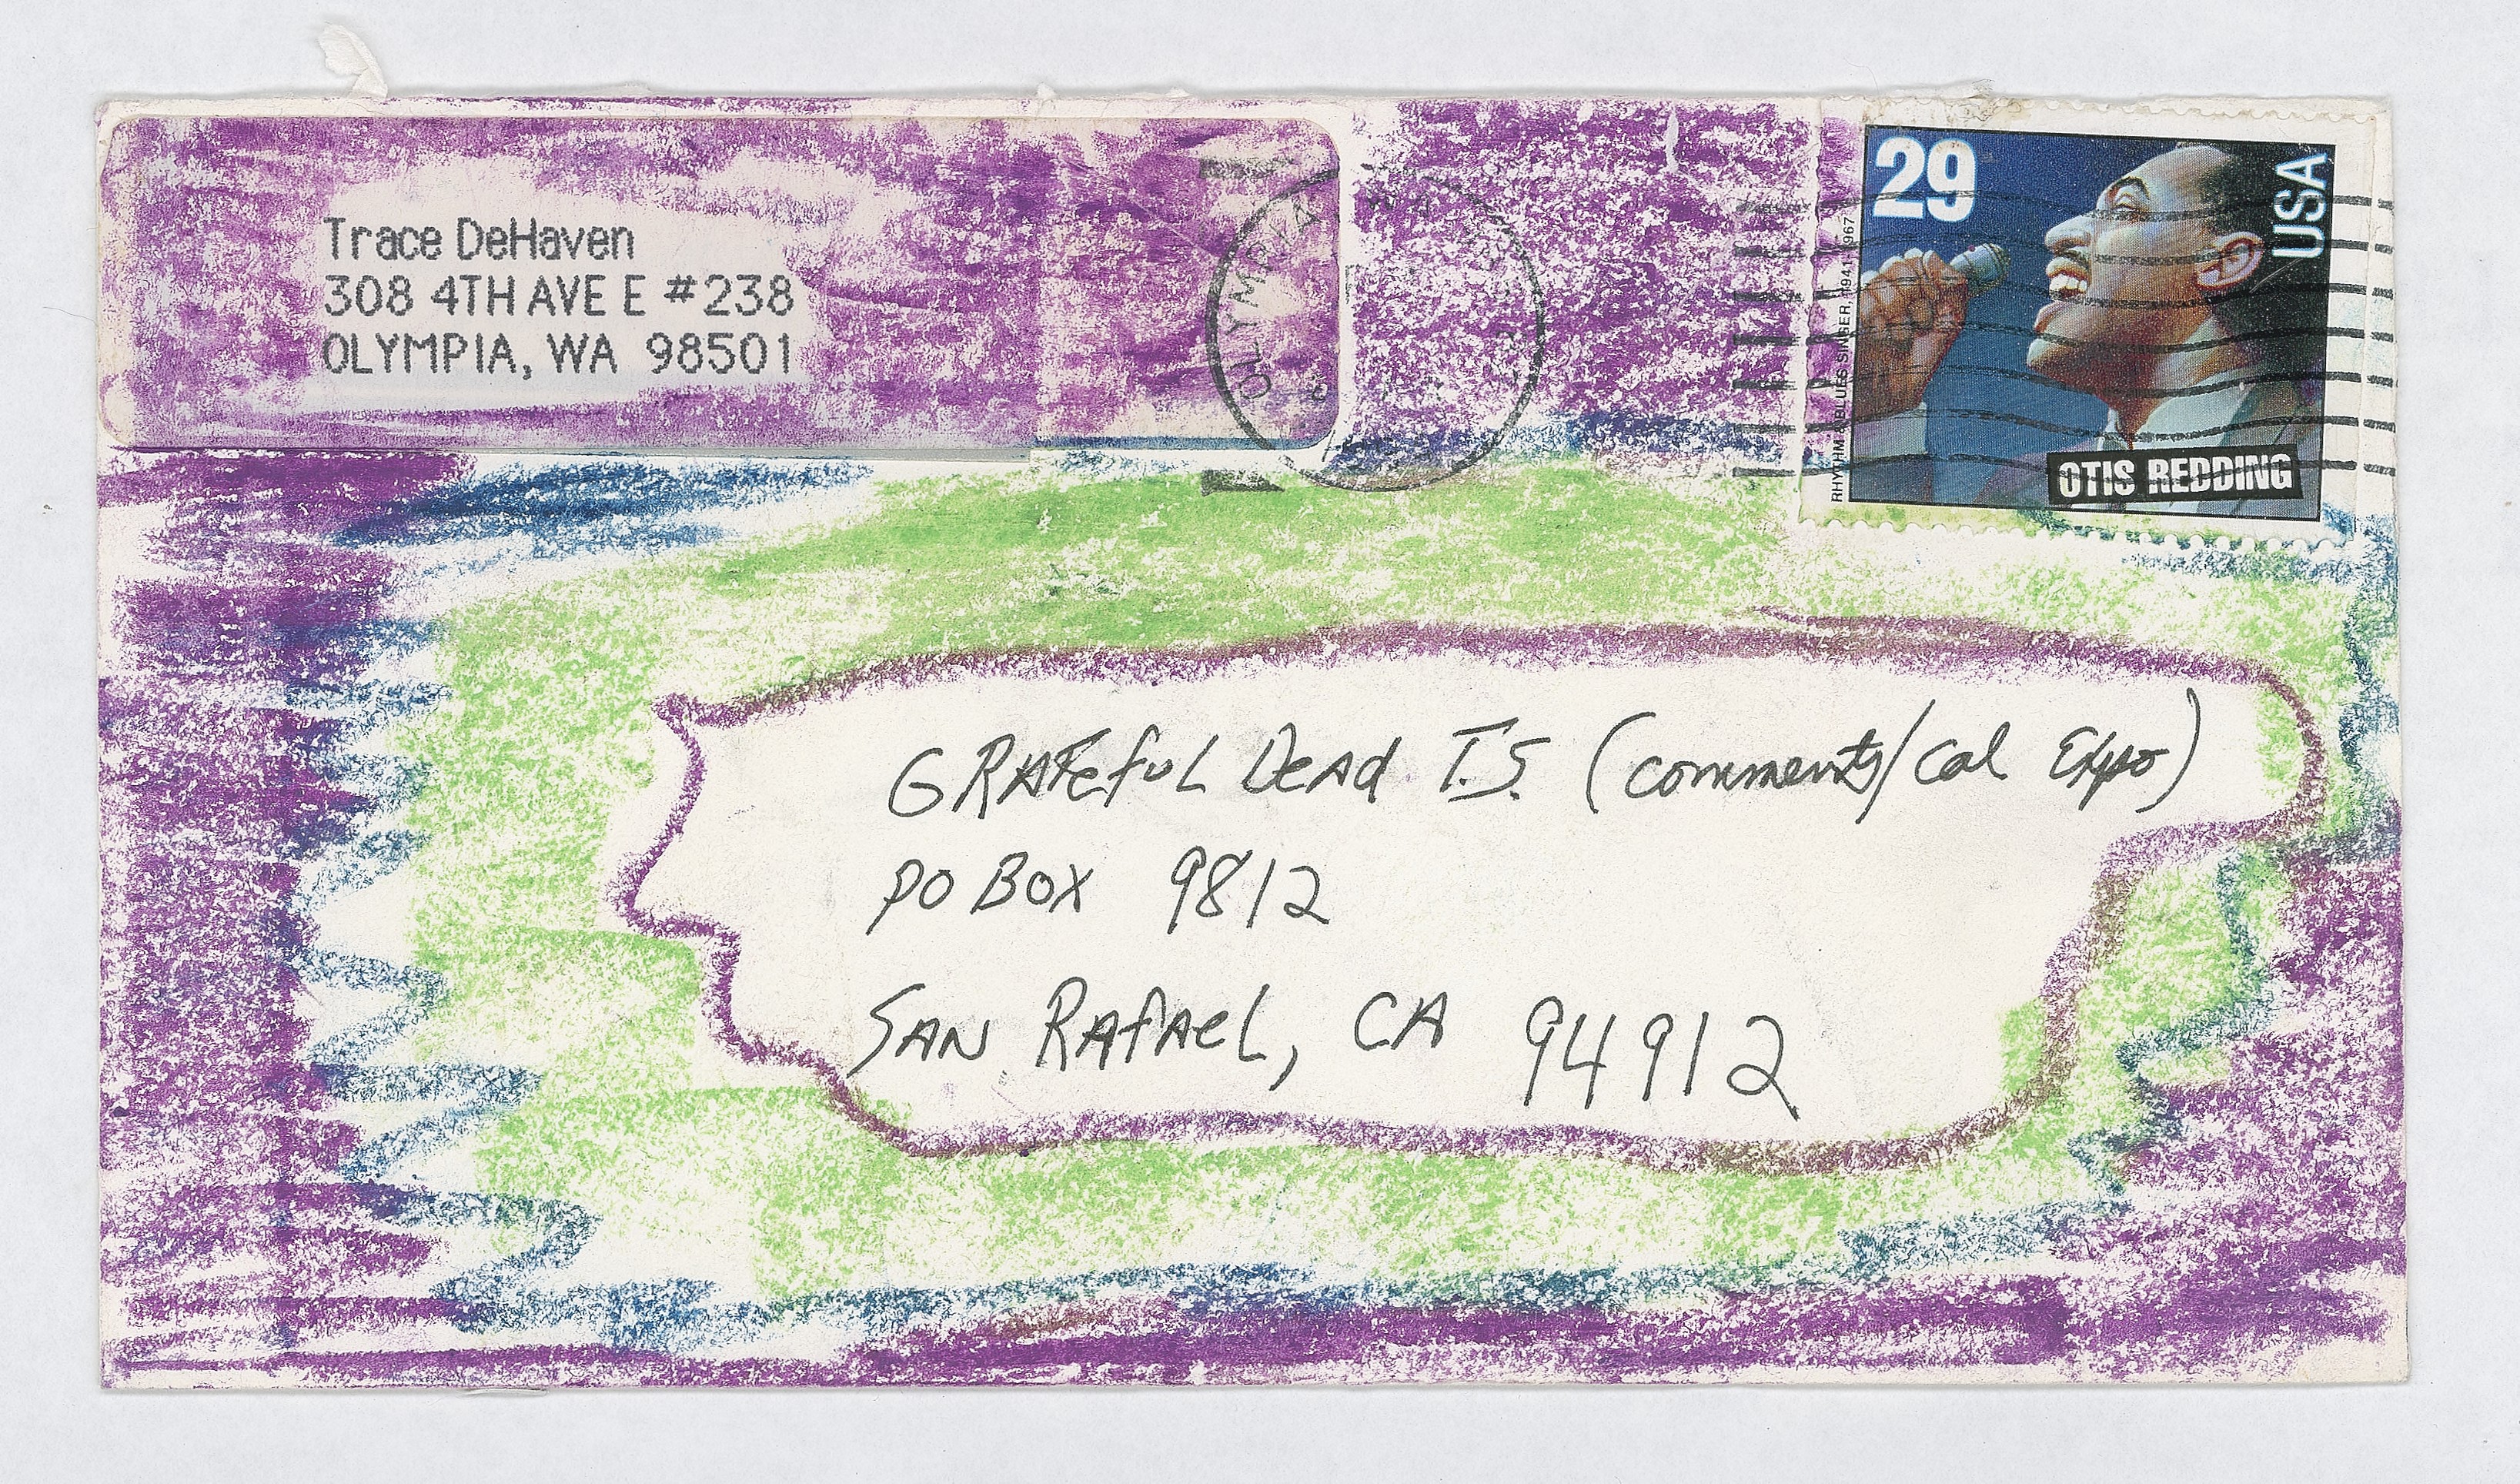 Trace DeHaven
308 4TH AVE E #238
OLYMPIA, WA 98501
OLYMPIA
29
USA
RHYTHM & BLUES SINGER, 1941-1967
OTIS REDDING
GRATEFUL DEAD T.S. (comments/Cal Expo)
PO BOX 9812
SAN RAFAEL, CA 94912